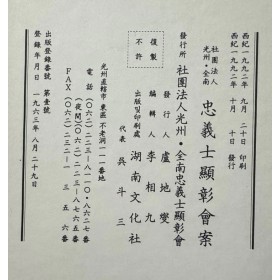 西紀一九九二年 九月二十日 印刷
西紀一九九二年 十月 十日 發行
社團法人 光州·全南 忠義士顯彰會案
發行所 社團法人光州·全南忠義士顯彰會
發行人 盧地燮
編輯人 李相九
出版및印刷處 湖南文化社
代表 吳斗三
複製不許
光州直轄市 東區 不老洞 一一一番地
電話 (〇六二) 二二三-八一一〇·八六二七番
(夜間) (〇六二) 二二三-八七六五番
FAX (〇六二) 二三二-一三五六番
出版登録番號 第壹號
登録年月日 一九六三年 八月 二十九日